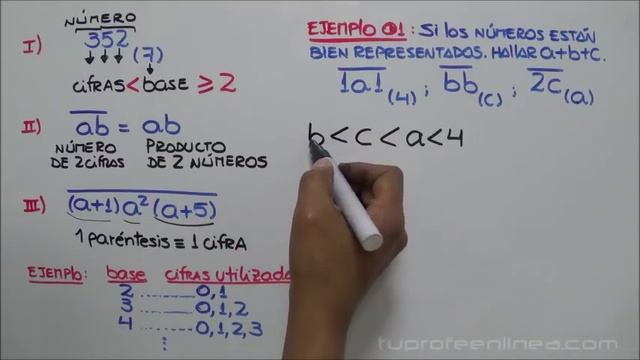 NÚMERO
I) 352 (7)
CIFRAS < BASE ≥ 2
II) ab = ab
NÚMERO DE 2 CIFRAS
PRODUCTO DE 2 NÚMEROS
III) (a+1) a² (a+5)
1 PARÉNTESIS ≡ 1 CIFRA
EJEMPLO: BASE CIFRAS UTILIZADA
2 ........ 0,1
3 ........ 0,1,2
4 ........ 0,1,2,3
EJEMPLO 01: SI LOS NÚMEROS ESTÁN
BIEN REPRESENTADOS. HALLAR a+b+c.
1a1 (4) ; bb (c) ; 2c (a)
b < c < a < 4
tuprofeenlinea.com